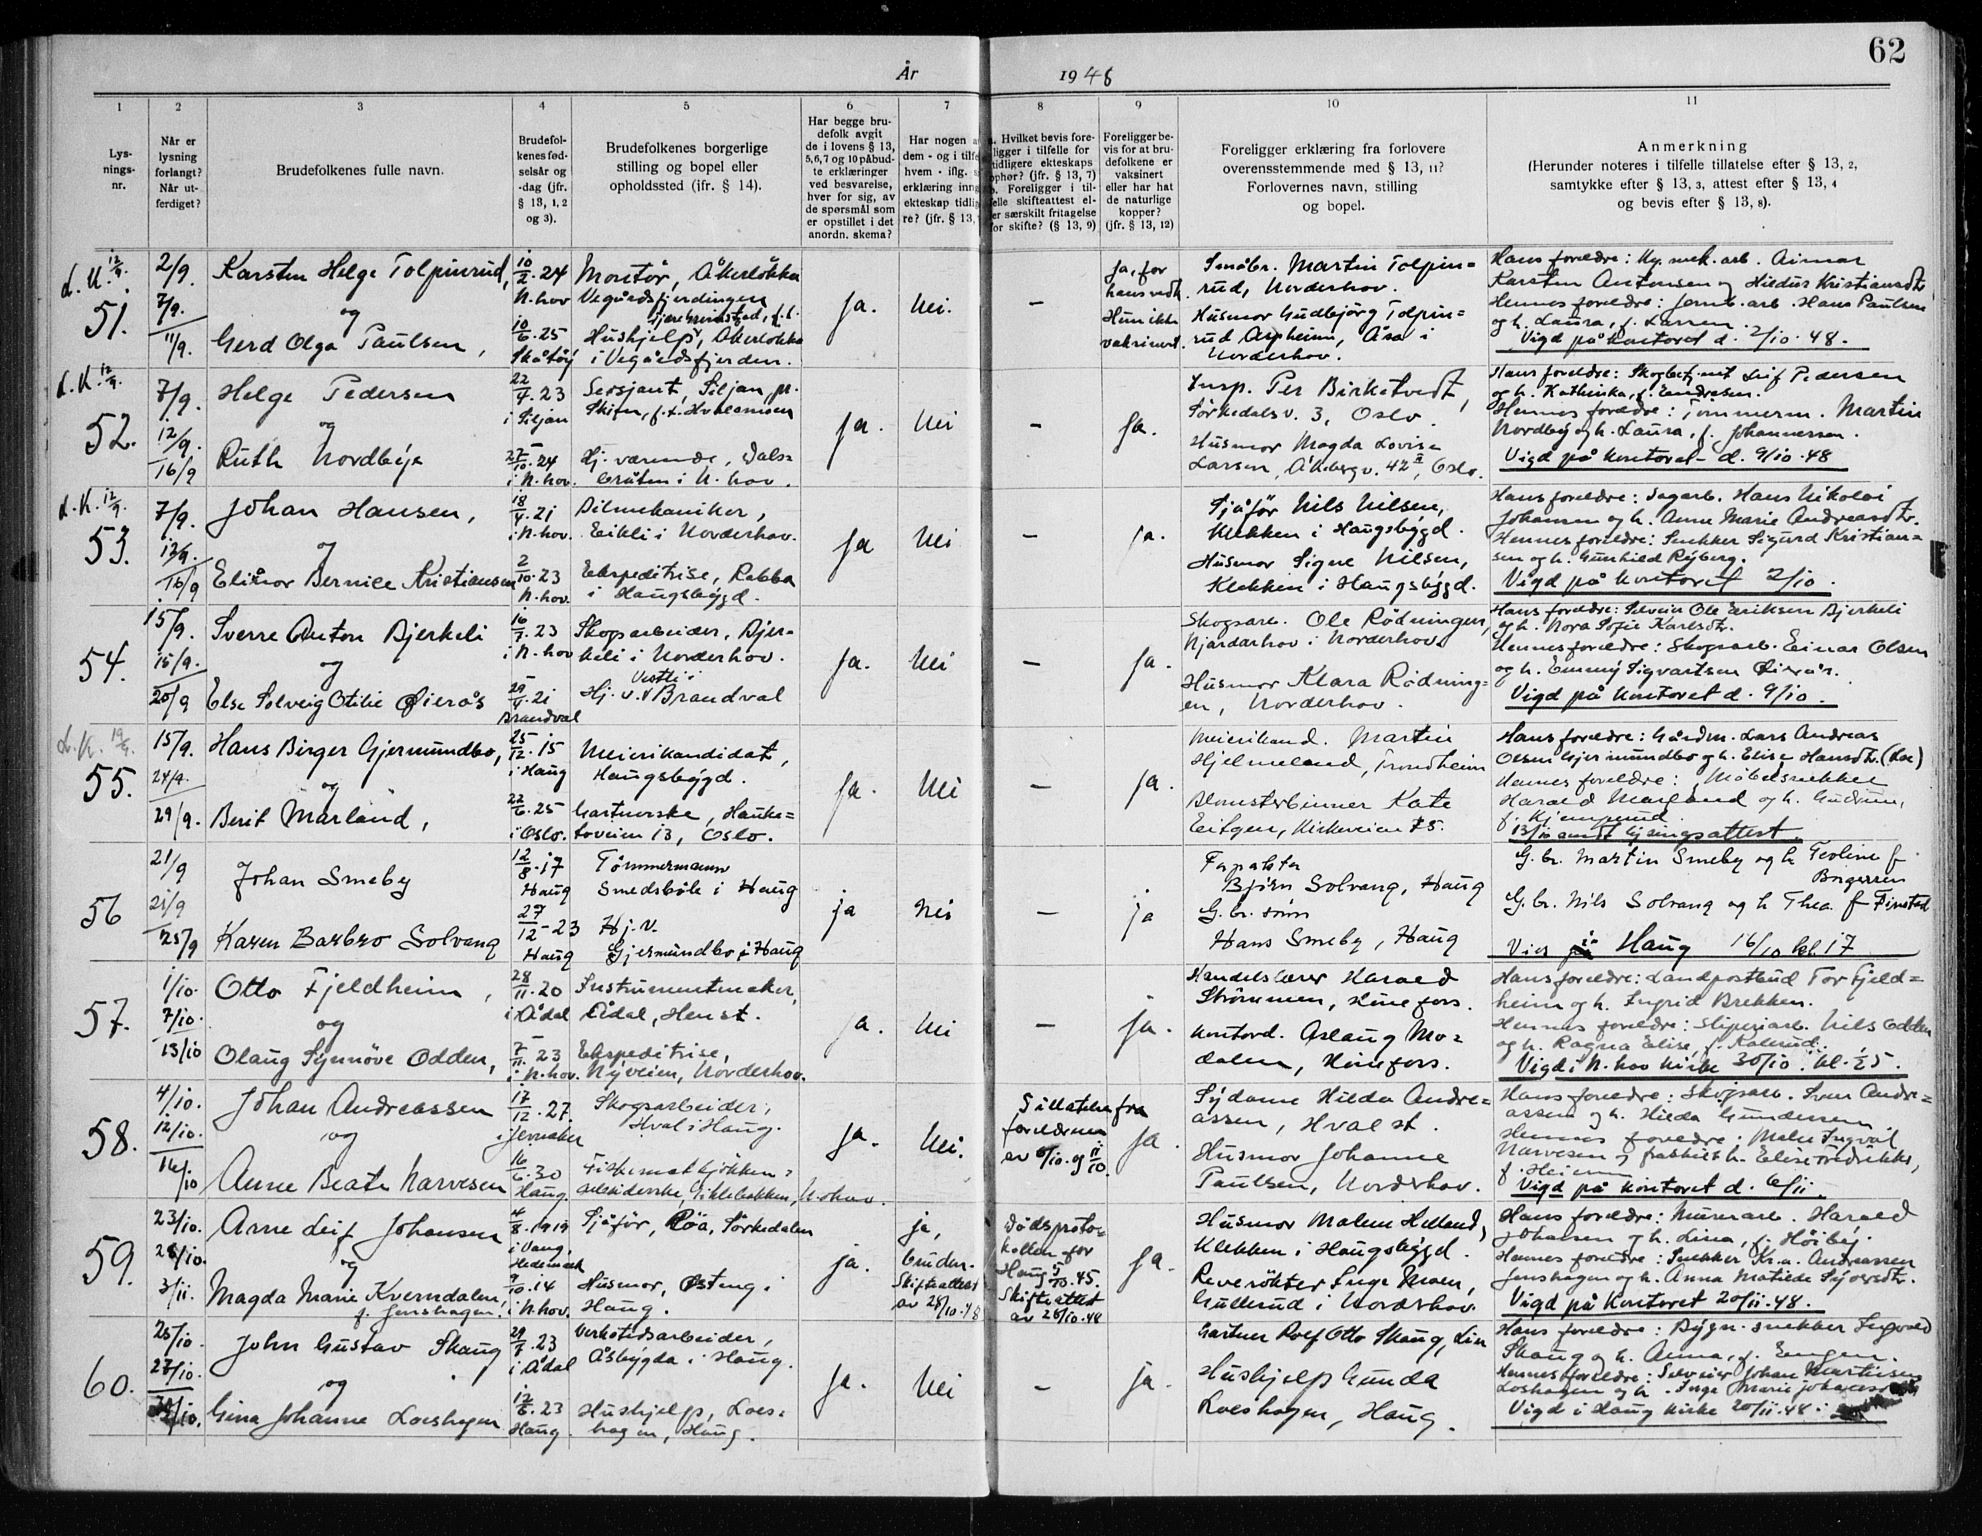 62
År 1948
1 2 3 4 5 6 7 8 9 10 11
Lysningsnr.
Når er lysning forlangt? Når utferdiget?
Brudefolkenes fulle navn.
Brudefolkenes fødselsår og -dag (jfr. § 13, 1, 2 og 3).
Brudefolkenes borgerlige stilling og bopel eller opholdssted (jfr. § 14).
Har begge brudefolk avgit de i lovens § 13, 5, 6, 7 og 10 påbudte erklæringer ved besvarelse, hver for sig, av de spørsmål som er opstillet i det anordn. skema?
Foreligger bevis for at brudefolkene er vaksinert eller har hat de naturlige kopper? (jfr. § 13, 12)
Foreligger erklæring fra forlovere overensstemmende med § 13, 11? Forlovernes navn, stilling og bopel.
Anmerkning
(Herunder noteres i tilfelle tillatelse efter § 13, 2, samtykke efter § 13, 3, attest efter § 13, 4 og bevis efter § 13, 8).
L.K. 12/9.
51.
2/9. 7/9. 11/9.
Karsten Helge Tolpinrud,
og
Gerd Olga Paulsen,
10/2.24 N.hov
10/6.25 Skåtøy
Montør, Åkerløkka
Vegårdsfjerdingen
Hushjelp, Åkerløkka
i Vegårdsfjerden.
Ja. Nei. –
Ja, for hans vedk. Hun ikke vaksinert.
Småbr. Martin Tolpinrud, Norderhov.
Husmor Gudbjörg Tolpinrud Aspheim, Åsa i Norderhov.
Hans foreldre: Karsten Antonsen og Hildur Kristiansdtr
Hennes foreldre: Jernb.arb. Hans Paulsen
og h. Laura, f. Larsen.
Vigd på kontoret d. 2/10.48.
L.K. 12/9.
52.
7/9. 12/9. 16/9
Helge Pedersen
og
Ruth Nordbye
22/4.23 i Siljan
27/10.24 i N.hov.
Sersjant, Siljan pr.
Skien, f.t. Hvalsmoen
Hj. værende, Dalsbråten i N.hov.
Ja. Nei – Ja.
Insp. Per Birketvedt,
Sørkedalsv. 3, Oslo.
Husmor Magda Lovise
Larsen, Åkebergv. 42 II, Oslo.
Hans foreldre: Skogbetjent Leif Pedersen
og h. Kathinka, f. Endresen.
Hennes foreldre: Tømmerm. Martin
Nordbey og h. Laura, f. Johannessen.
Vigd på kontoret d. 9/10.48
L.K. 12/9.
53.
7/9. 12/9. 16/9
Johan Hansen,
og
Elinor Bernice Kristiansen
18/4.21 i N.hov.
2/10.23 N.hov.
Bilmekaniker,
Eikli i Norderhov.
Ekspeditrise, Rabba
i Haugsbygd.
Ja Nei – Ja.
Sjåfør Nils Nilsen,
Klekken i Haugsbygd.
Husmor Signe Nilsen,
Klekken i Haugsbygd.
Hans foreldre: Sagarb. Hans Nikolai
Johansen og h. Anne Marie Andreasdtr.
Hennes foreldre: Snekker Sigurd Kristiansen og h. Gunhild Ryberg.
Vigd på kontoret 2/10.
54.
15/9. 15/9. 20/9
Sverre Anton Bjerkeli
og
Else Solveig Otilie Øierås
16/7.23 i N.hov
29/4.21 Brandval
Skogsarbeider, Bjerkeli i Norderhov.
Hj. v. Vestli i Brandval
Ja. Nei – Ja.
Skogsarb. Ole Rødningen,
Njardarhov i Norderhov.
Husmor Klara Rødningen, Norderhov.
Hans foreldre: Selveier Ole Eriksen Bjerkeli
og h. Nora Sofie Karlsdtr.
Hennes foreldre: Skogsarb. Einar Olsen
og h. Emmy Sigvartsen Øierås.
Vigd på kontoret d. 9/10.
L.K. 19/9.
55.
15/9. 24/9. 29/9.
Hans Birger Gjermundbo,
og
Berit Marland,
25/12.15 i Haug
22/6.25 i Oslo.
Meierikandidat,
Haugsbygd.
Gartnerske, Hauketoveien 13, Oslo.
Ja. Nei – Ja.
Meierikand. Martin
Hjelmeland, Trondheim
Blomsterbinner Kate
Eitgen, Kirkeveien 75.
Hans foreldre: Gårdm. Lars Andreas
Olsen Gjermundbo og h. Elise Hansdtr.
Hennes foreldre: Møbelsnekker
Harald Marland og h. Gudrun,
13/10 sendt lysningsattest
56
21/9 21/9 25/9
Johan Smeby
Karen Barbro Solvang
12/8.17 Haug
27/12-23 Haug
Tømmermann
Smedsbøle i Haug
Hj.v.
Gjermundbo i Haug
ja Nei – ja
Bjørn Solvang, Haug
G.br. sønn
Hans Smeby, Haug
G.br. Martin Smeby og h Teoline f
Borgersen
G.br. Nils Solvang og h Thea f Finsted
Vies i Haug 16/10 kl. 17
57.
1/10. 7/10. 13/10
Otto Fjeldheim,
og
Olaug Synnøve Odden,
28/11.20 i Ådal
7/11.23 i N.hov.
Instrumentmaker,
Ådal, Hen st.
Ekspeditrise,
Nyveien, Norderhov.
Ja. Nei – Ja.
Handelslærer Harald
Strømmen, Hønefoss.
Kontord. Aslaug Modalen, Hønefoss.
Hans foreldre: Landpostbud Tor Fjeldheim og h. Ingrid Brekken.
Hennes foreldre: Sliperiarb. Nils Odden
og h. Ragna Elise, f. Kolerud.
Vigd i N.hov kirke 30/10.
58.
4/10. 12/10. 16/10
Johan Andreassen
og
Anne Beate Narvesen
17/12.27. i Jevnaker
16/6.30 Haug.
Skogsarbeider,
Hval i Haug.
Fiskematkjøkkenarbeiderske, Eiklebakken, N.hov.
Ja. Nei.
Tillatelse fra foreldrene av 6/10. og 11/10.
Ja.
Sydame Hilda Andreassen, Hval st.
Husmor Johanne
Paulsen, Norderhov.
Hans foreldre: Skogsarb. Sven Andreassen og h. Hilda Gundersen
Hennes foreldre: Maler Ingval
Narvesen og fraskilt h. Elise Fredrikke,
f. Heiem
Vigd på kontoret d. 6/11.
59.
23/10. 28/10. 3/11.
Arne Leif Johansen
og
Magda Marie Kverndalen,
f. Jenshagen.
4/8.1919 i Vang, Hedemark
9/10.14 i N.hov.
Sjåfør, Røa, Sørkedalen
Husmor, Østeng i
Haug.
ja.
ja, bruden. Skifteattest av 28/10.48
Dødsprotokollen for Haug 5/10.45. Skifteattest av 28/10.48
Ja.
Husmor Malem Helland,
Klekken i Haugsbygd.
Revерøkter Inge Moen,
Gullerud i Norderhov.
Hans foreldre: Murerarb. Harald
Johansen og h. Lina, f. Höibÿ.
Hennes foreldre: Snekker Kr.a. Andreassen
Jenshagen og h. Anna Matilde Syversdtr.
Vigd på kontoret 20/11.48.
60.
25/10. 27/10.
John Gustav Skaug
og
Gina Johanne Loeshagen
29/7.23 i Ådal
12/6.23 Haug.
Verkstedsarbeider,
Åsbygda i Haug.
Hushjelp, Loeshagen, Haug.
Ja. Nei – ja.
Gartner Rolf Otto Skaug, Lier
Hushjelp Gunda
Loeshagen, Haug.
Hans foreldre: Bygn.snekker Ingvald
Skaug og h. Anna, f. Engen.
Hennes foreldre: Selveier Johan Martinsen
Loshagen og h. Inga Marie
Vigd i Haug kirke 20/11.48